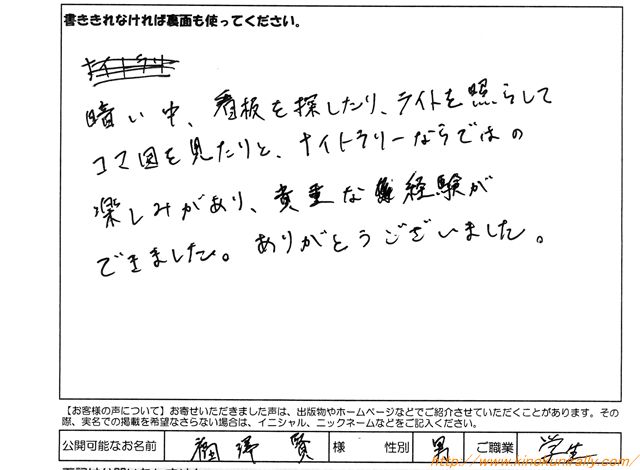 書ききれなければ裏面も使ってください。
暗い中、看板を探したり、ライトを照らして
コマ図を見たりと、ナイトラリーならではの
楽しみがあり、貴重な経験が
できました。ありがとうございました。
http://www.kinokunirally.com
【お客様の声について】お寄せいただきました声は、出版物やホームページなどでご紹介させていただくことがあります。その
際、実名での掲載を希望なさらない場合は、イニシャル、ニックネームなどをご記入ください。
公開可能なお名前 賢 様 性別 男 ご職業 学生